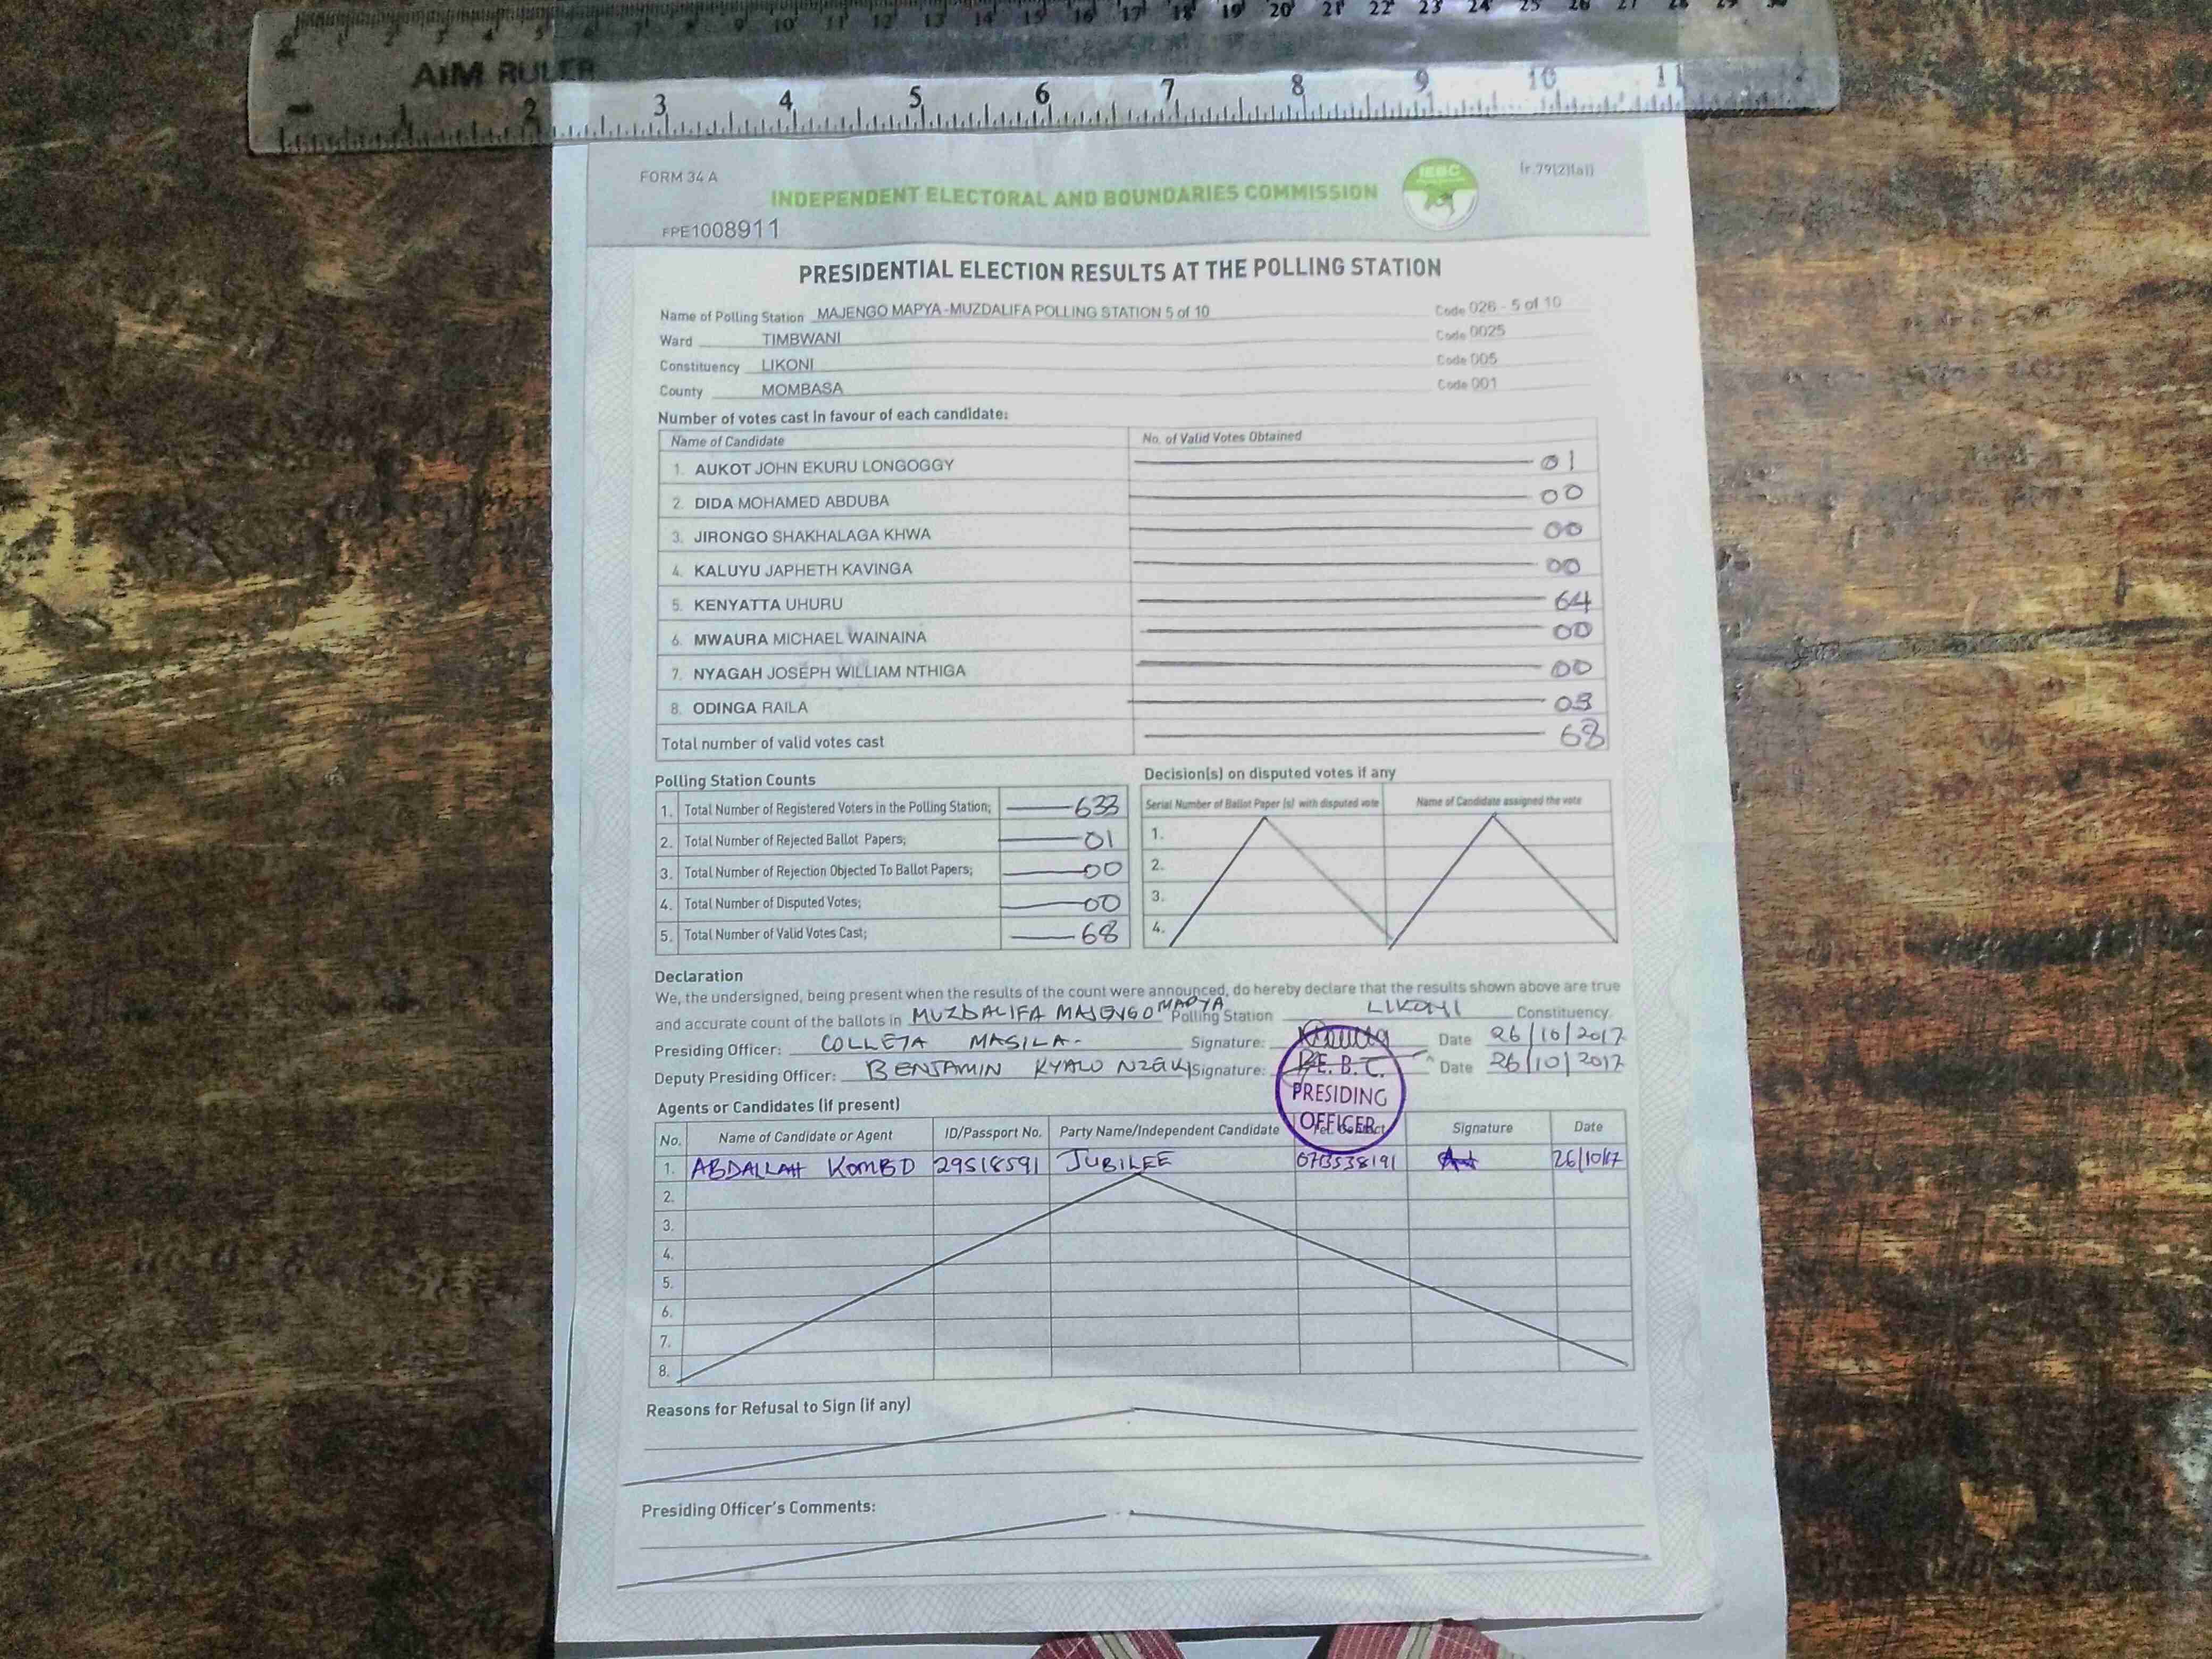 AIM RULER
3 4 5 6 7 8 9 10 11
FORM 34 A
(r.79(2)(a))
IEBC
INDEPENDENT ELECTORAL AND BOUNDARIES COMMISSION
FPE1008911
PRESIDENTIAL ELECTION RESULTS AT THE POLLING STATION
Name of Polling Station MAJENGO MAPYA-MUZDALIFA POLLING STATION 5 of 10 Code 026 - 5 of 10
Ward TIMBWANI Code 0025
Constituency LIKONI Code 005
County MOMBASA Code 001
Number of votes cast in favour of each candidate:
Name of Candidate No. of Valid Votes Obtained
1. AUKOT JOHN EKURU LONGOGGY 01
2. DIDA MOHAMED ABDUBA 00
3. JIRONGO SHAKHALAGA KHWA 00
4. KALUYU JAPHETH KAVINGA 00
5. KENYATTA UHURU 64
6. MWAURA MICHAEL WAINAINA 00
7. NYAGAH JOSEPH WILLIAM NTHIGA 00
8. ODINGA RAILA 03
Total number of valid votes cast 68
Polling Station Counts
1. Total Number of Registered Voters in the Polling Station; 633
2. Total Number of Rejected Ballot Papers; 01
3. Total Number of Rejection Objected To Ballot Papers; 00
4. Total Number of Disputed Votes; 00
5. Total Number of Valid Votes Cast; 68
Decision(s) on disputed votes if any
Serial Number of Ballot Paper (s) with disputed vote Name of Candidate assigned the vote
1.
2.
3.
4.
Declaration
We, the undersigned, being present when the results of the count were announced, do hereby declare that the results shown above are true
and accurate count of the ballots in MUZDALIFA MAJENGO MAPYA Polling Station LIKONI Constituency.
Presiding Officer: COLLETA MASILA. Signature: Date 26/10/2017
Deputy Presiding Officer: BENJAMIN KYALO NZEKI Signature: Date 26/10/2017
I.E.B.C.
PRESIDING
OFFICER
Agents or Candidates (if present)
No. Name of Candidate or Agent ID/Passport No. Party Name/Independent Candidate Tel. Contact Signature Date
1. ABDALLAH KOMBO 29518591 JUBILEE 0713538191 26/10/17
2.
3.
4.
5.
6.
7.
8.
Reasons for Refusal to Sign (if any)
Presiding Officer's Comments: